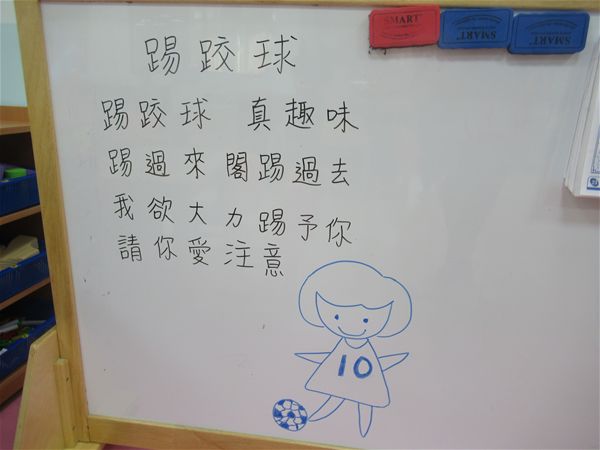 踢跤球
踢跤球 真趣味
踢過來 閣踢過去
我欲大力踢予你
請你愛注意
10
SMART
SMART
SMART